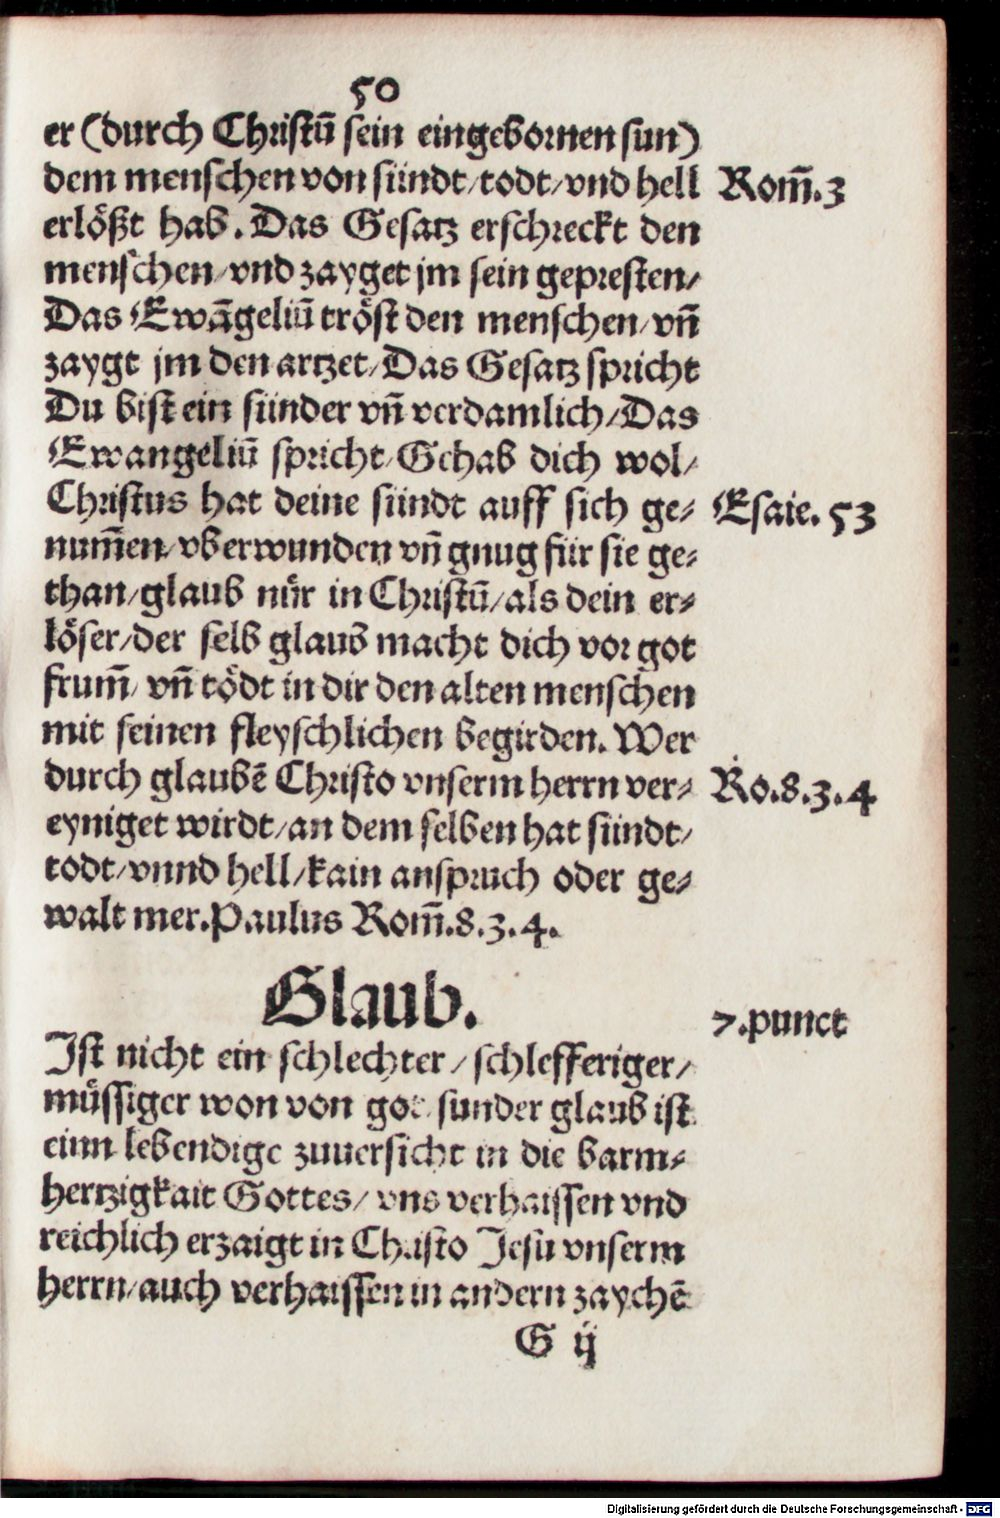 50
er (durch Christū sein eingebornen sun)
dem menschen von sündt/todt/vnd hell
Rom̄.3
erlößt hab. Das Gesatz erschreckt den
menschen/vnd zayget jm sein gepresten/
Das Ewāgeliū tröst den menschen/vn̄
zaygt jm den artzet/Das Gesatz spricht
Du bist ein sünder vn̄ verdamlich/Das
Ewangeliū spricht/Gehab dich wol/
Christus hat deine sündt auff sich ge⸗
Esaie. 53
num̄en/vberwunden vn̄ gnug für sie ge⸗
than/glaub nůr in Christū/als dein er⸗
löser/der selb glaub macht dich vor got
frum̄/vn̄ tödt in dir den alten menschen
mit seinen fleyschlichen begirden. Wer
durch glaubē Christo vnserm herrn ver⸗
Ro.8.3.4
eyniget wirdt/an dem selben hat sündt/
todt/vnnd hell/kain anspruch oder ge⸗
walt mer.Paulus Rom̄.8.3.4.
Glaub.
7.punct
Ist nicht ein schlechter/schlefferiger/
müssiger won von got sunder glaub ist
einn lebendige zuuersicht in die barm⸗
hertzigkait Gottes/vns verhaissen vnd
reichlich erzaigt in Christo Jesu vnserm
herrn/auch verhaissen in andern zaychē
G ij
Digitalisierung gefördert durch die Deutsche Forschungsgemeinschaft - DFG